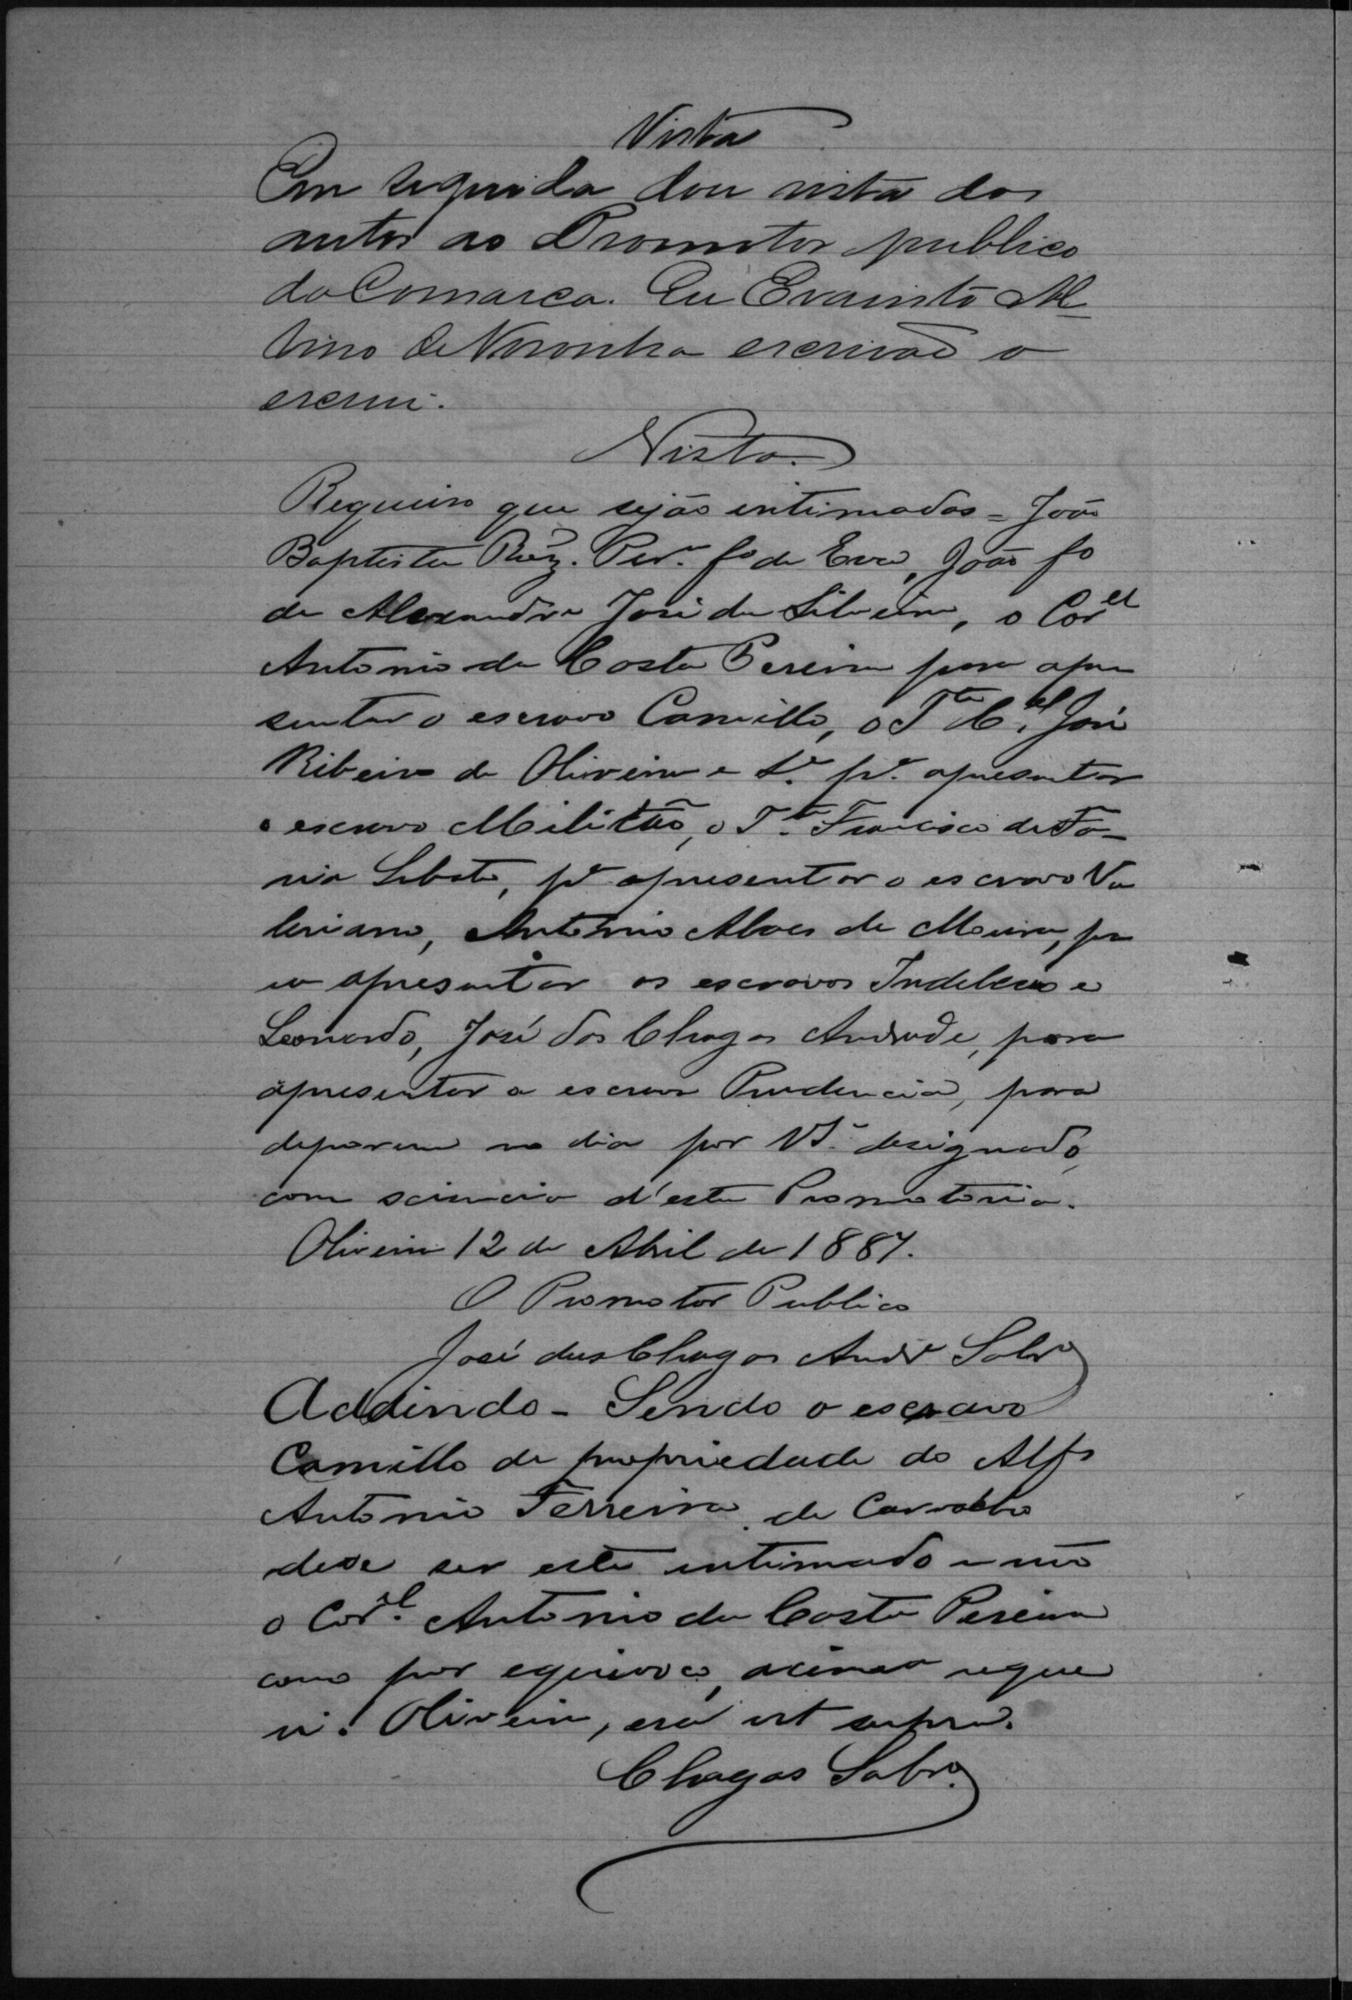 Vista
Em seguida dou vista dos
autos ao Promotor publico
da Comarca. Eu Evaristo Al-
bino de Noronha escrivaõ o
escrevi.
Vista.
Requeiro que sejão intimados = João
Baptista Per.ª fº de Eva, João fº
de Alexandre José da Silveira, o Cor.el
Antonio da Costa Pereira para apre
sentar o escravo Camillo, o T.te C.el José
Ribeiro de Oliveira e S.ª p.ª apresentar
o escravo Militão, o T.te Francisco de Fa-
ria Lobato, p.ª apresentar o escravo Va
leriano, Antonio Alves de Moura, pa
ra apresentar os escravos Indalecio e
Leonardo, José das Chagas Andrade, para
apresentar a escrava Prudencia, para
deporem no dia por V.S.ª designado,
com sciencia d'esta Promotoria.
Oliveira 12 de Abril de 1887.
O Promotor Publico
José das Chagas Andr.e Sobr.º
Addindo - Sendo o escravo
Camillo de propriedade do Alfs
Antonio Ferreira de Carvalho
deve ser este intimado e não
o Cor.el Antonio da Costa Pereira
como por equivoco, acima reque
ri. Oliveira, era ut supra.
Chagas Sobr.º